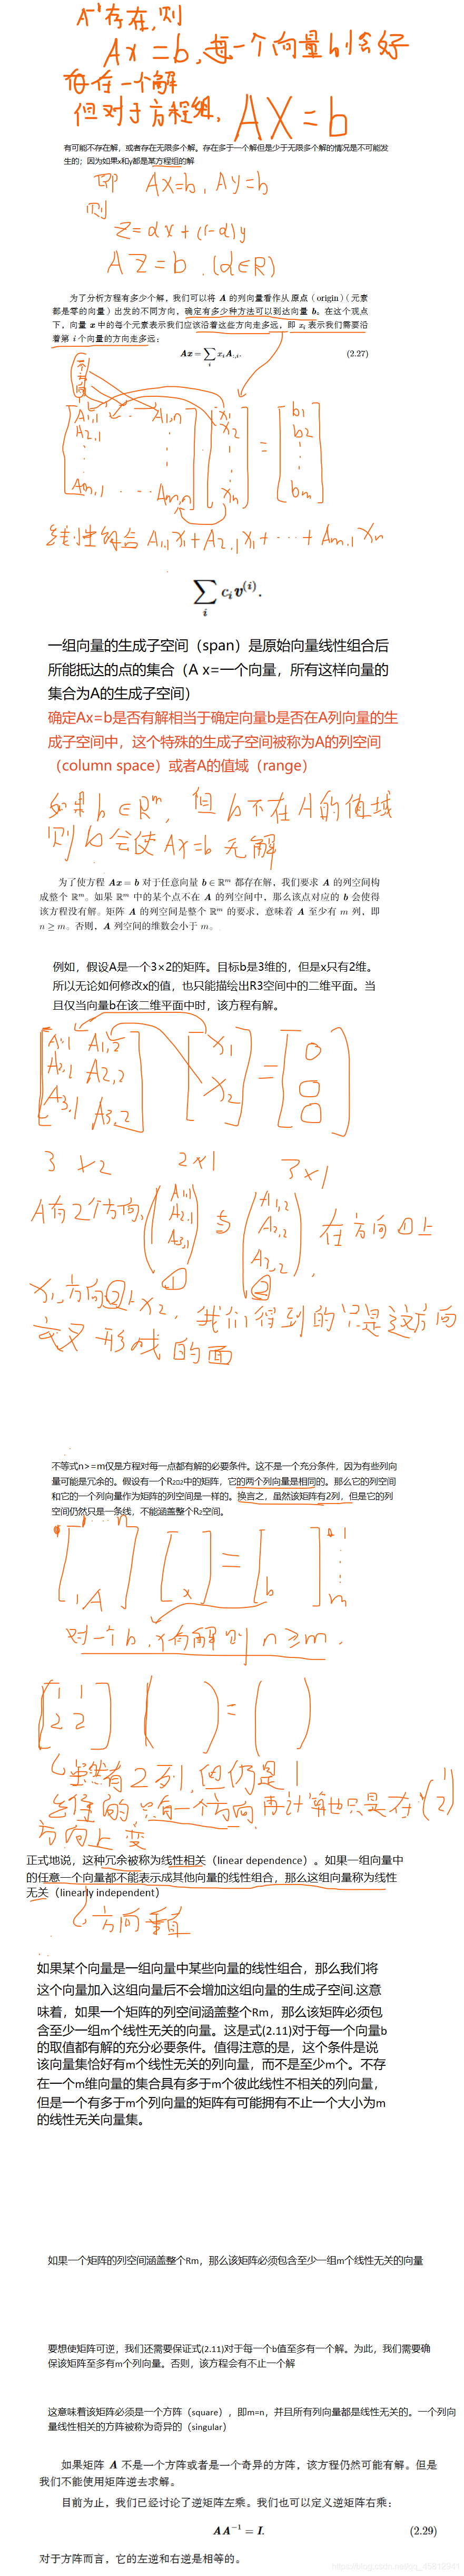 A⁻¹存在,则
Ax=b,每一个向量b恰好
存在一个解
但对于方程组,
AX=b
有可能不存在解，或者存在无限多个解。存在多于一个解但是少于无限多个解的情况是不可能发
生的；因为如果x和y都是某方程组的解
即 AX=b, AY=b
则
Z=αx+(1-α)y
AZ=b, (α∈R)
为了分析方程有多少个解，我们可以将 A 的列向量看作从原点（origin）（元素
都是零的向量）出发的不同方向，确定有多少种方法可以到达向量 b。在这个观点
下，向量 x 中的每个元素表示我们应该沿着这些方向走多远，即 xᵢ 表示我们需要沿
着第 i 个向量的方向走多远：
Ax = ∑ᵢ xᵢA:,ᵢ. (2.27)
不方向
A1,1 · · A1,n x1 b1
A2,1 x2 = b2
Am,1 · · · Am,n xn bm
线性组合 A1,1 X1+A2,1 X1+···+Am,1 Xn
∑ᵢ cᵢv⁽ⁱ⁾.
一组向量的生成子空间（span）是原始向量线性组合后
所能抵达的点的集合（A x=一个向量，所有这样向量的
集合为A的生成子空间）
确定Ax=b是否有解相当于确定向量b是否在A列向量的生
成子空间中，这个特殊的生成子空间被称为A的列空间
（column space）或者A的值域（range）
如果b∈Rᵐ, 但b不在A的值域
则b会使Ax=b无解
为了使方程 Ax = b 对于任意向量 b ∈ ℝᵐ 都存在解，我们要求 A 的列空间构
成整个 ℝᵐ。如果 ℝᵐ 中的某个点不在 A 的列空间中，那么该点对应的 b 会使得
该方程没有解。矩阵 A 的列空间是整个 ℝᵐ 的要求，意味着 A 至少有 m 列，即
n ≥ m。否则，A 列空间的维数会小于 m。
例如，假设A是一个3×2的矩阵。目标b是3维的，但是x只有2维。
所以无论如何修改x的值，也只能描绘出R3空间中的二维平面。当
且仅当向量b在该二维平面中时，该方程有解。
A1,1 A1,2 x1 0
A2,1 A2,2 = 0
A3,1 A3,2 x2 0
3×2 2×1 3×1
A有2个方向, (A1,1 A2,1 A3,1) ① 与 (A1,2 A2,2 A3,2) ②, 在方向①上
X1,方向②上x2, 我们得到的只是这方向
交叉形成的面
不等式n>=m仅是方程对每一点都有解的必要条件。这不是一个充分条件，因为有些列向
量可能是冗余的。假设有一个R202中的矩阵，它的两个列向量是相同的。那么它的列空间
和它的一个列向量作为矩阵的列空间是一样的。换言之，虽然该矩阵有2列，但是它的列
空间仍然只是一条线，不能涵盖整个R2空间。
1 ··· n
A x = b 1 ⋮ m
对一个b,x有解则 n≥m.
1 1
2 2 =
虽然有2列,但仍是1
给得的只有一个方向,再计算也只是在(1 2)
方向上变
正式地说，这种冗余被称为线性相关（linear dependence）。如果一组向量中
的任意一个向量都不能表示成其他向量的线性组合，那么这组向量称为线性
无关（linearly independent）
方向重
如果某个向量是一组向量中某些向量的线性组合，那么我们将
这个向量加入这组向量后不会增加这组向量的生成子空间.这意
味着，如果一个矩阵的列空间涵盖整个Rm，那么该矩阵必须包
含至少一组m个线性无关的向量。这是式(2.11)对于每一个向量b
的取值都有解的充分必要条件。值得注意的是，这个条件是说
该向量集恰好有m个线性无关的列向量，而不是至少m个。不存
在一个m维向量的集合具有多于m个彼此线性不相关的列向量，
但是一个有多于m个列向量的矩阵有可能拥有不止一个大小为m
的线性无关向量集。
如果一个矩阵的列空间涵盖整个Rm，那么该矩阵必须包含至少一组m个线性无关的向量
要想使矩阵可逆，我们还需要保证式(2.11)对于每一个b值至多有一个解。为此，我们需要确
保该矩阵至多有m个列向量。否则，该方程会有不止一个解
这意味着该矩阵必须是一个方阵（square），即m=n，并且所有列向量都是线性无关的。一个列向
量线性相关的方阵被称为奇异的（singular）
如果矩阵 A 不是一个方阵或者是一个奇异的方阵，该方程仍然可能有解。但是
我们不能使用矩阵逆去求解。
目前为止，我们已经讨论了逆矩阵左乘。我们也可以定义逆矩阵右乘：
AA⁻¹ = I. (2.29)
对于方阵而言，它的左逆和右逆是相等的。